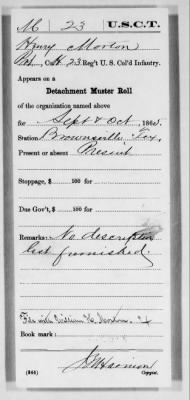 M | 23 | U.S.C.T.
Henry Morton
Pvt., Co. H, 23 Reg't U. S. Col'd Infantry.
Appears on a
Detachment Muster Roll
of the organization named above
for Sept & Oct, 1865.
Station Brownsville, Tex.
Present or absent Present
Stoppage, $ 100 for
Due Gov't, $ 100 for
Remarks: No descriptive
list furnished.
File with William H.
Book mark:
Harrison
(344) Copyist.